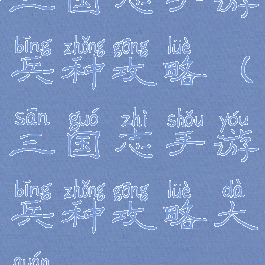 三国志手游
bīng zhǒng gōng lüè
兵种攻略（
sān guó zhì shǒu yóu
三国志手游
bīng zhǒng gōng lüè dà
兵种攻略大
quán